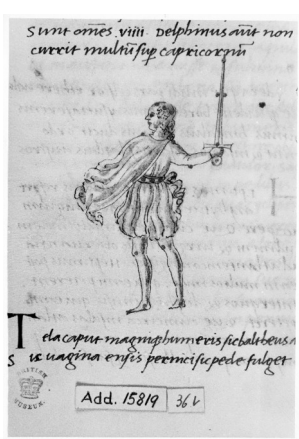 Sunt om̃es. viiii. Delphinus aũt non
currit multũ sup̱ capricornũ
Tela caput magniq̃ humeris sic baltheus a
sic uagina ensis pernici sic pede fulget
BRITISH
MUSEUM
Add. 15819
36 v